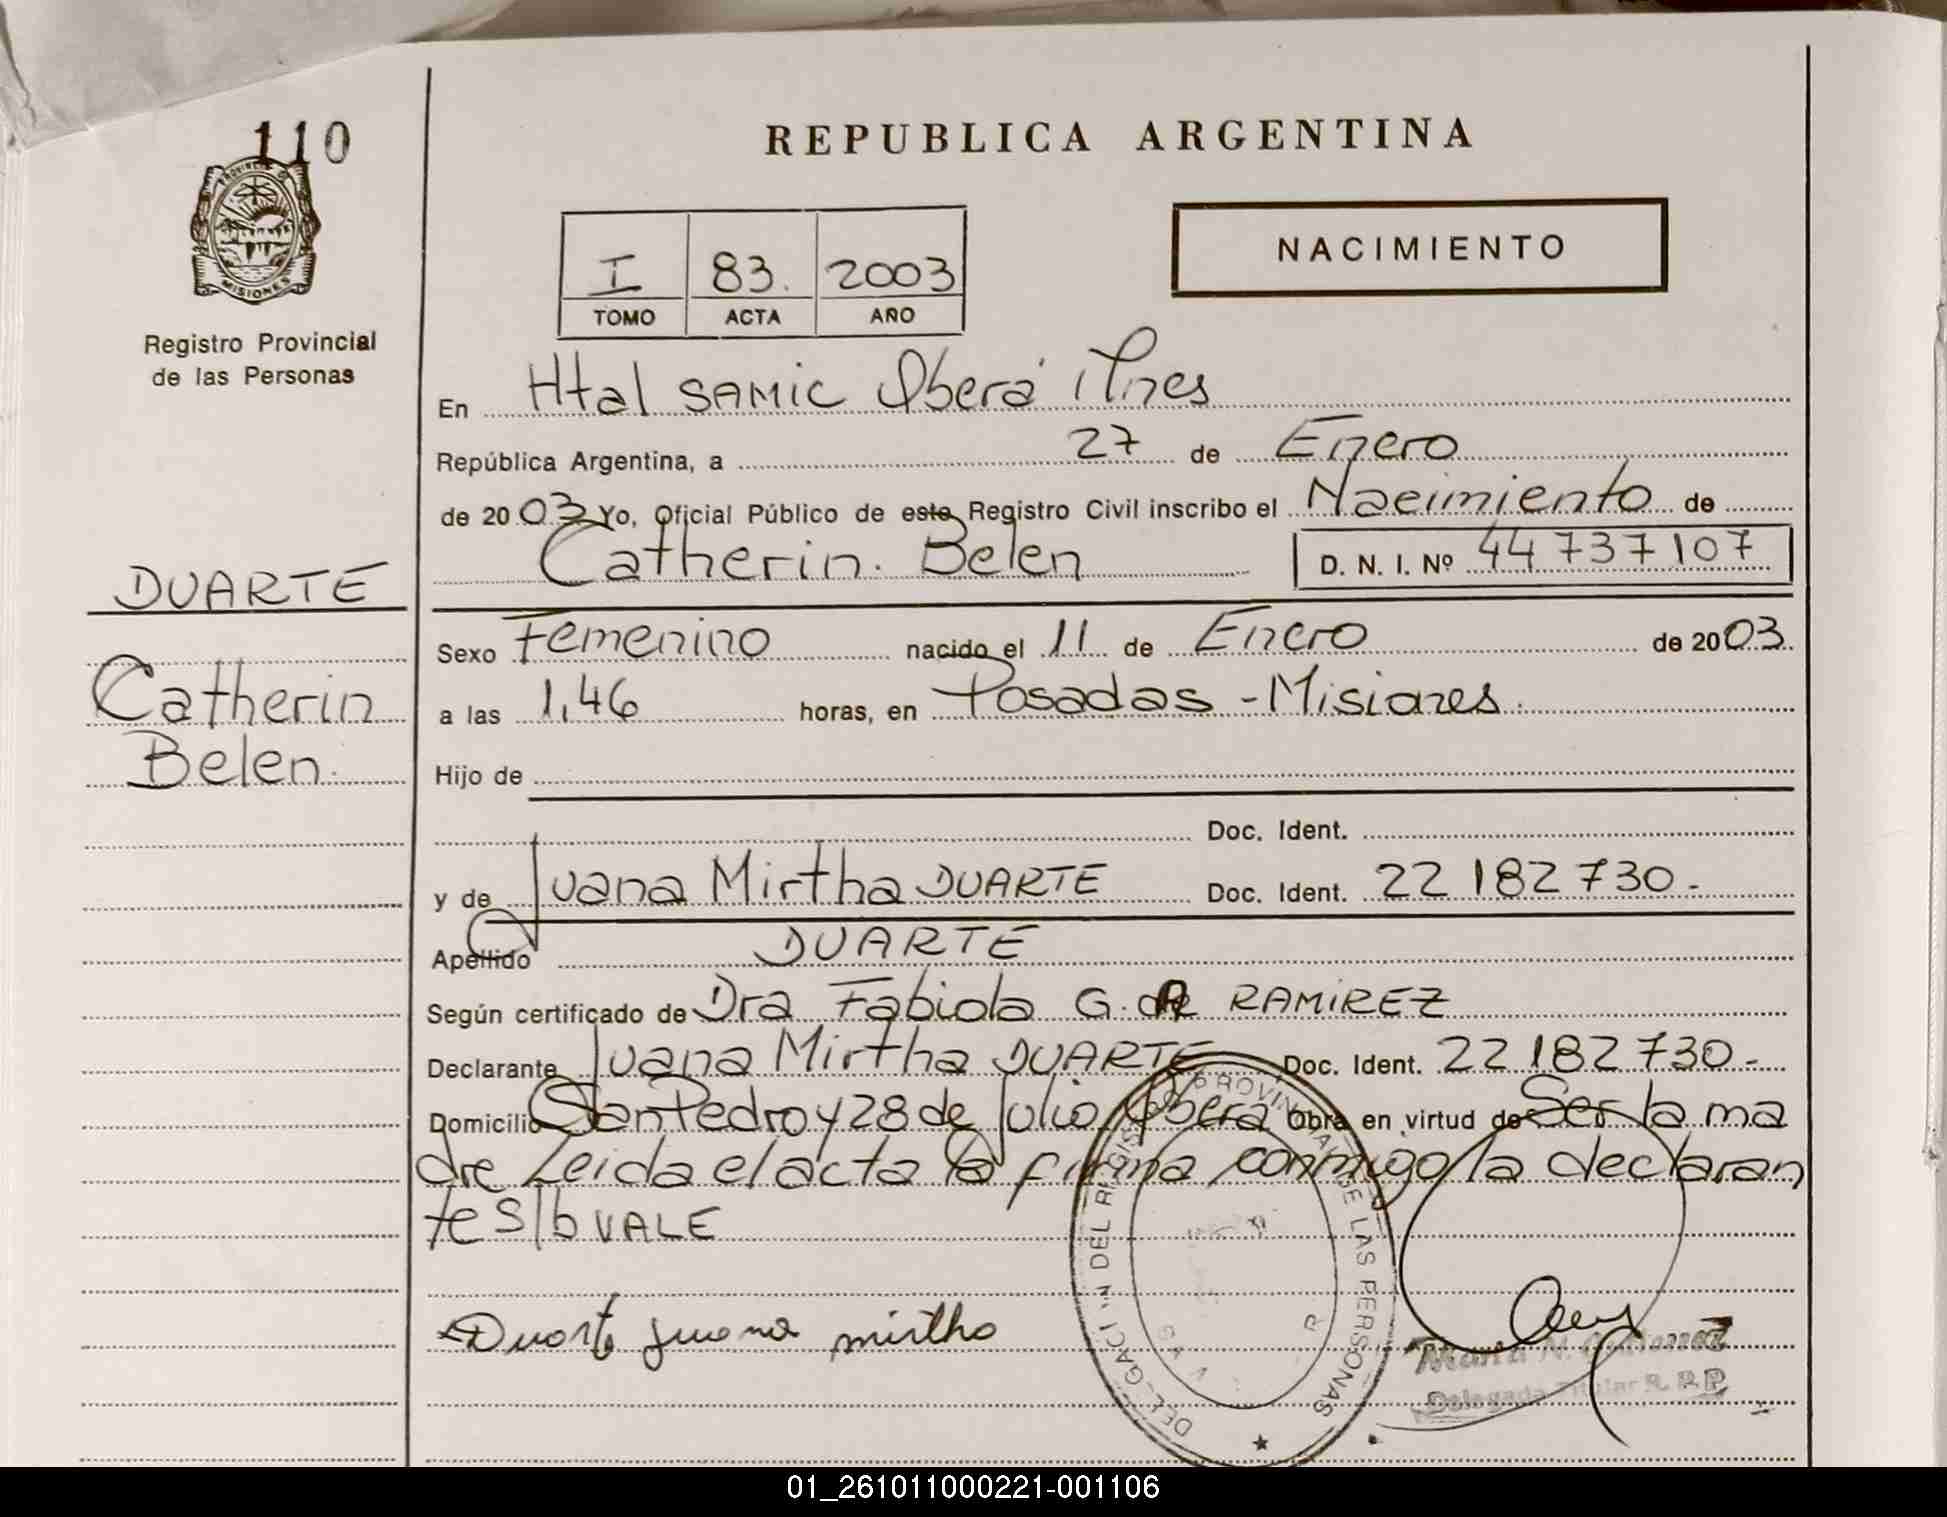 110
REPUBLICA ARGENTINA
PROVINCIA D
MISIONES
NACIMIENTO
I 83. 2003
TOMO ACTA AÑO
Registro Provincial
de las Personas
En Htal SAMIC Oberá Mnes
República Argentina, a 27 de Enero
de 2003 Yo, Oficial Público de este Registro Civil inscribo el Nacimiento de
Catherin. Belen D. N. I. Nº 44737107
DUARTE
Catherin
Belen.
Sexo Femenino nacido el 11 de Enero de 2003.
a las 1,46 horas, en Posadas - Misiones.
Hijo de
Doc. Ident.
y de Juana Mirtha DUARTE Doc. Ident. 22 182 730.-
Apellido DUARTE
Según certificado de Dra Fabiola G. de RAMIREZ
Declarante Juana Mirtha DUARTE Doc. Ident. 22 182 730.-
Domicilio San Pedro y 28 de Julio Oberá Obra en virtud de Ser la ma
dre Leida el acta la firma conmigo la declaran
te S/b VALE
Duarte Juana mirtha
DEL REGISTRO PROVINCIAL DE LAS PERSONAS
Delegada Titular R. P. P.
01_261011000221-001106